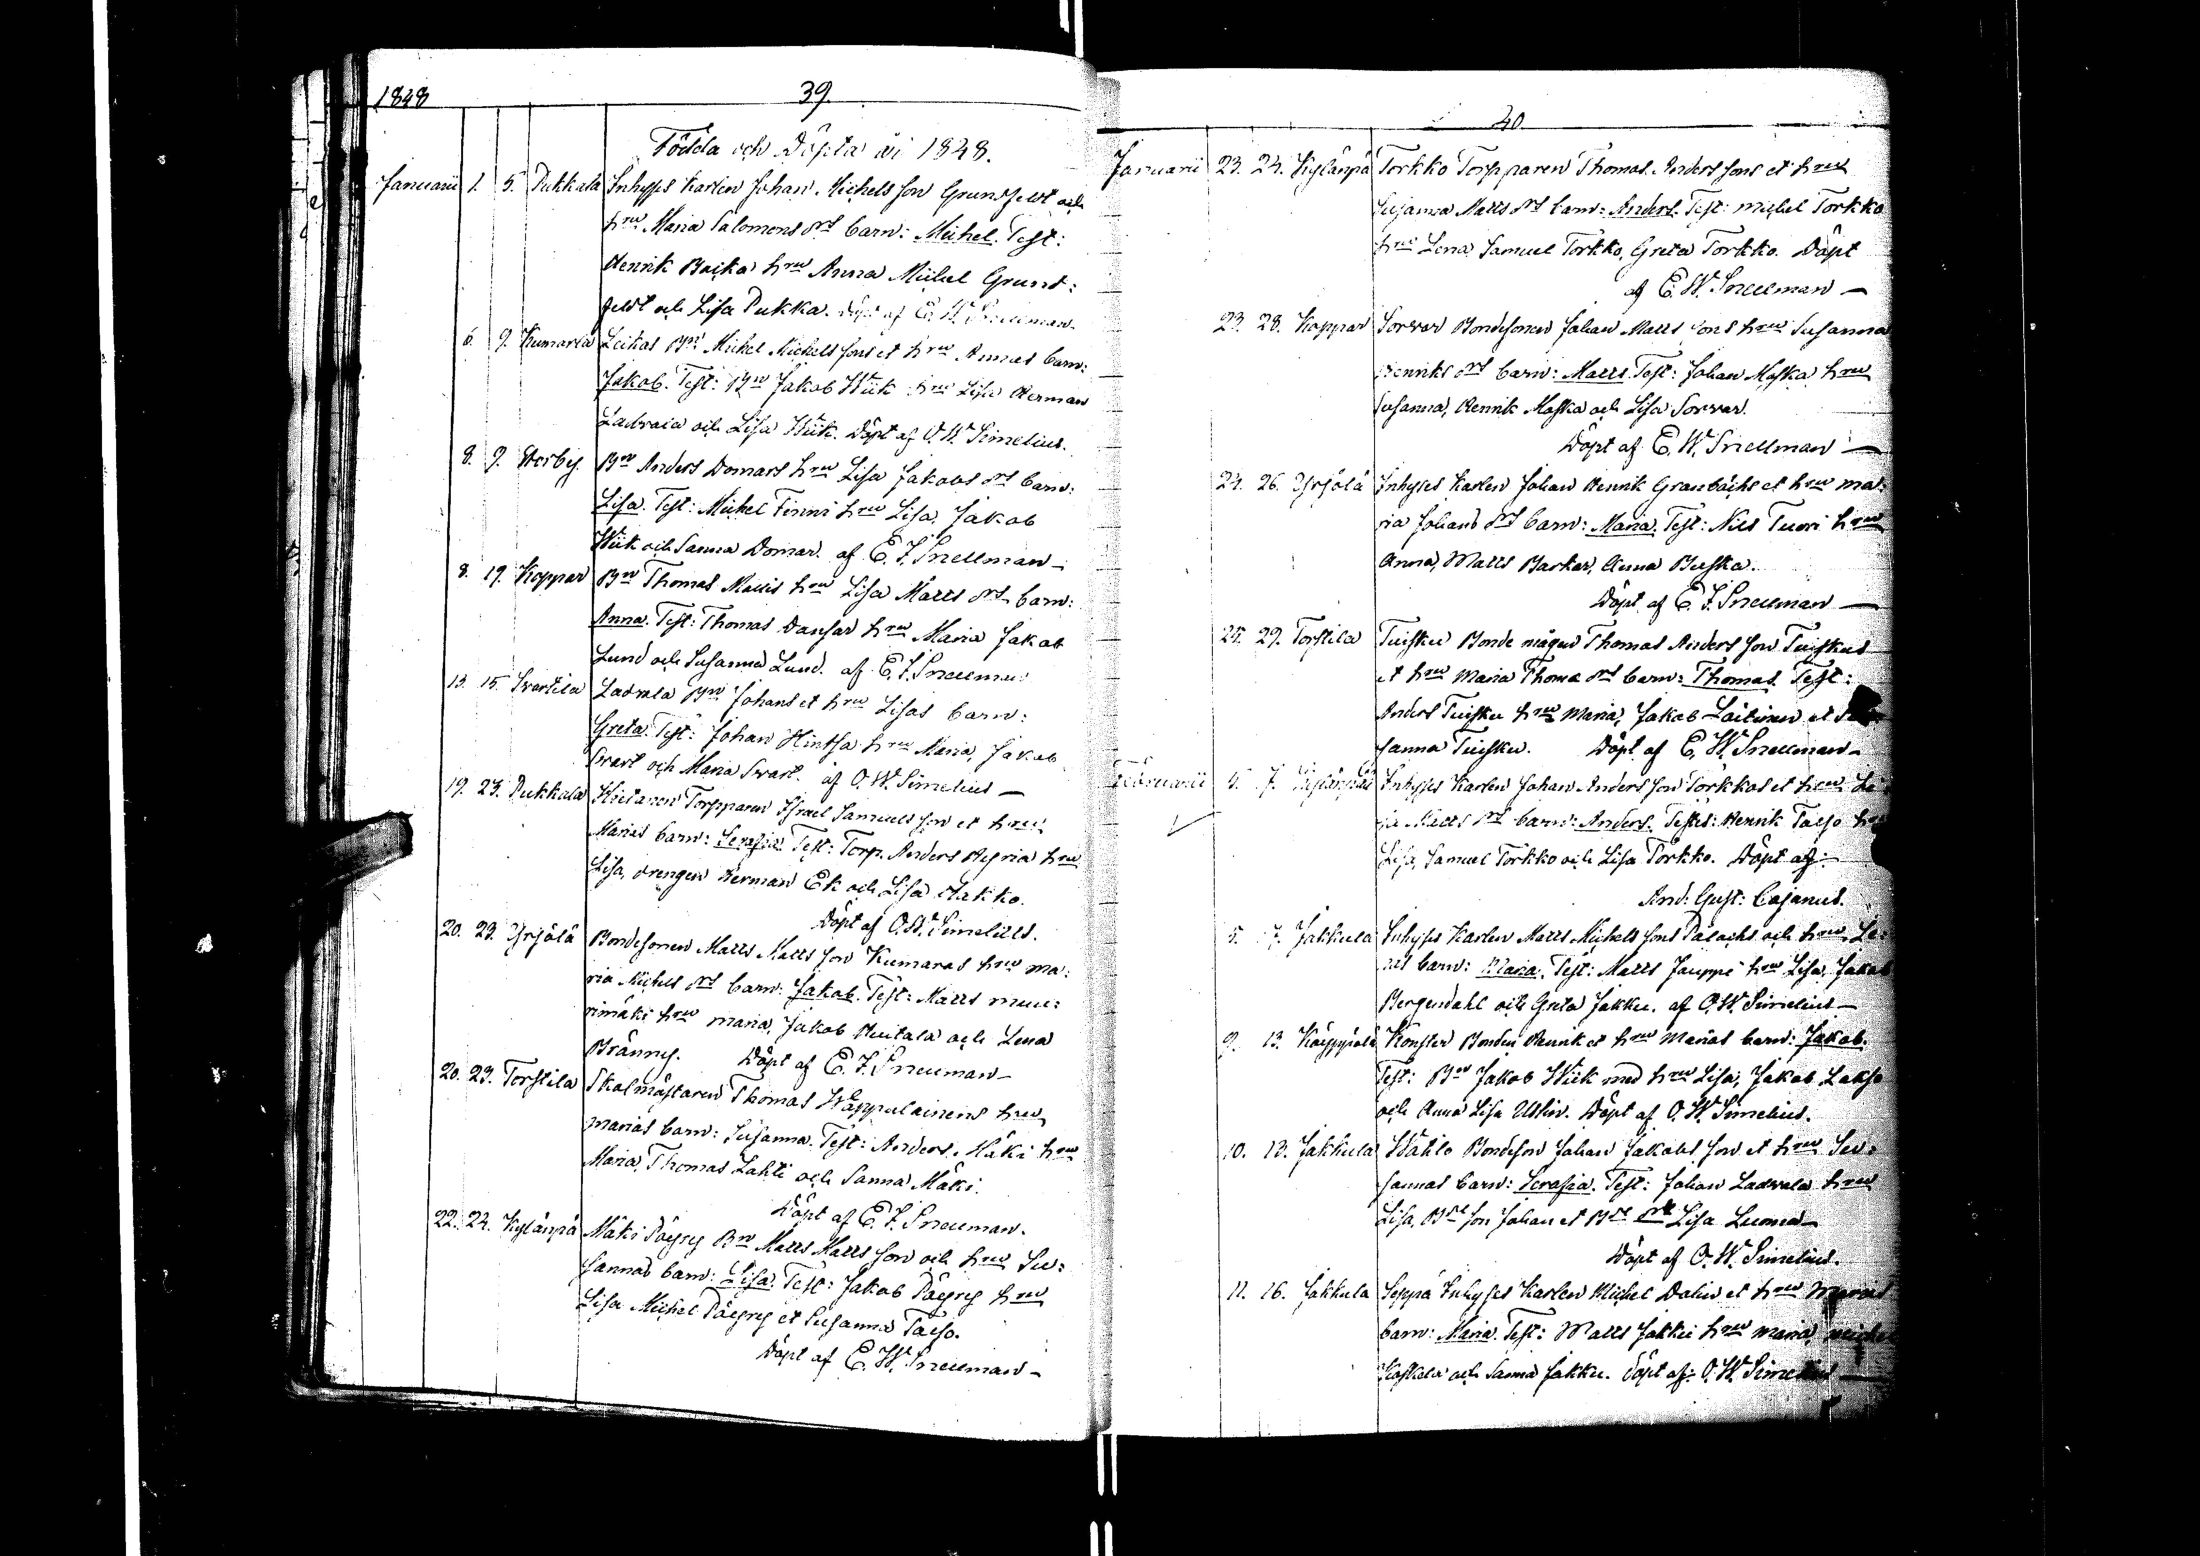 1848
39.
Födda och Döpta år 1848.
Januarii 1. 5. Pukkala Inhyses Karlen Johan Michelsson Grundfeldt och
hru Maria Salomonsdr barn: Michel. Test:
Henrik Boika hru Anna Michel Grund:
feldt och Lisa Pukka. Döpt af E. W. Snellman.
6. 9. Kumarla Leikas Bn Michel Michelssons et hru Annas barn:
Jakob. Test: Bn Jakob Wiik hru Lisa Herman
Ladvala och Lisa Wiik. Döpt af O. W. Simelius.
8. 9. Storby Bn Anders Domars hru Lisa Jakobs dr barn:
Lisa. Test: Michel Finni hru Lisa, Jakob
Wiik och Sanna Domar. af E. F. Snellman
8. 19. Koppar Bn Thomas Matts hru Lisa Matts dr barn:
Anna. Test: Thomas Dansar hru Maria Jakob
Lund och Susanna Lund. af E. F. Snellman
13. 15. Svartila Ladvala Bn Johans et hru Lisas barn:
Greta. Test: Johan Hintsa hru Maria, Jakob
Svart och Maria Svart. af O. W. Simelius
19. 23. Pukkala Torpparen Israel Samuelsson et hru
Marias barn: Serafia. Test: Torp. Anders hru
Lisa, drengen Herman Ek och Lisa Hakko.
Döpt af O. W. Simelius.
20. 23. Yrjälä Bondesonen Matts Mattsson Kumaras hru Ma:
ria Michels dr barn: Jakob. Test: Matts Muu:
rimäki hru Maria, Jakob Huitala och Lena
Bränny. Döpt af E. F. Snellman
20. 23. Torstila Skolmästaren Thomas Wäppulainens hru
Marias barn: Susanna. Test: Anders Mäki hru
Maria, Thomas Lahti och Sanna Mäki.
Döpt af E. F. Snellman.
22. 24. Kylänpä Mäki Päyry Bn Matts Mattsson och hru Su:
sannas barn: Lisa. Test: Jakob Päyry hru
Lisa Michel Päyry et Susanna Taeso.
Döpt af E. W. Snellman
40
Januarii 23. 24. Kylänpä Torkko Torpparen Thomas Anderssons et hru
Susanna Matts dr barn: Anders. Test: Michel Torkko
hru Lena, Samuel Torkko, Greta Torkko. Döpt
af E. W. Snellman
23. 28. Koppar Sorvar Bondesonen Johan Mattssons hru Susanna
Henriks dr barn: Matts. Test: Johan Maska hru
Susanna, Henrik Maska och Lisa Sorvar.
Döpt af E. W. Snellman
24. 26. Yrjälä Inhyses Karlen Johan Henrik Granbäcks et hru Ma:
ria Johans dr barn: Maria. Test: Nils Tuori hru
Anna, Matts Backar, Anna Buska.
Döpt af E. F. Snellman
25. 29. Torstila Tuisku Bonde mågen Thomas Andersson Tuiskus
et hru Maria Thomæ dr barn: Thomas. Test:
Anders Tuisku hru Maria, Jakob Laitinen et
sanna Tuisku. Döpt af E. W. Snellman
Februarii 5. 7. Kylänpä Inhyses Karlen Johan Andersson Torkkos et hru
Matts dr barn: Anders. Testes: Henrik Taeso
Lisa, Samuel Torkko och Lisa Torkko. Döpt af:
And: Gust: Cajanus.
5. 7. Jakkula Inhyses Karlen Matts Michelssons Palachs och hru Le:
nas barn: Maria. Test: Matts Jauppi hru Lisa, Jakob
Bergendahl och Greta Jakku. af O. W. Simelius
9. 13. Käyppälä Könster Bonden Henrik et hru Marias barn: Jakob.
Test: Bn Jakob Wiik med hru Lisa, Jakob Lakso
och Anna Lisa Uslin. Döpt af O. W. Simelius.
10. 13. Jakkula Wähle Bondeson Johan Jakobsson et hru Su:
sannas barn: Serafia. Test: Johan Ladvala hru
Lisa, Bde son Johan et Bde dr Lisa Luoma
Döpt af O. W. Simelius.
11. 16. Jakkula Seppä Inhyses Karlen Michel Dalin et hru Marias
barn: Maria. Test: Matts Jakku hru Maria, Michel
Koskela och Sanna Jakku. Döpt af: O. W. Simelius